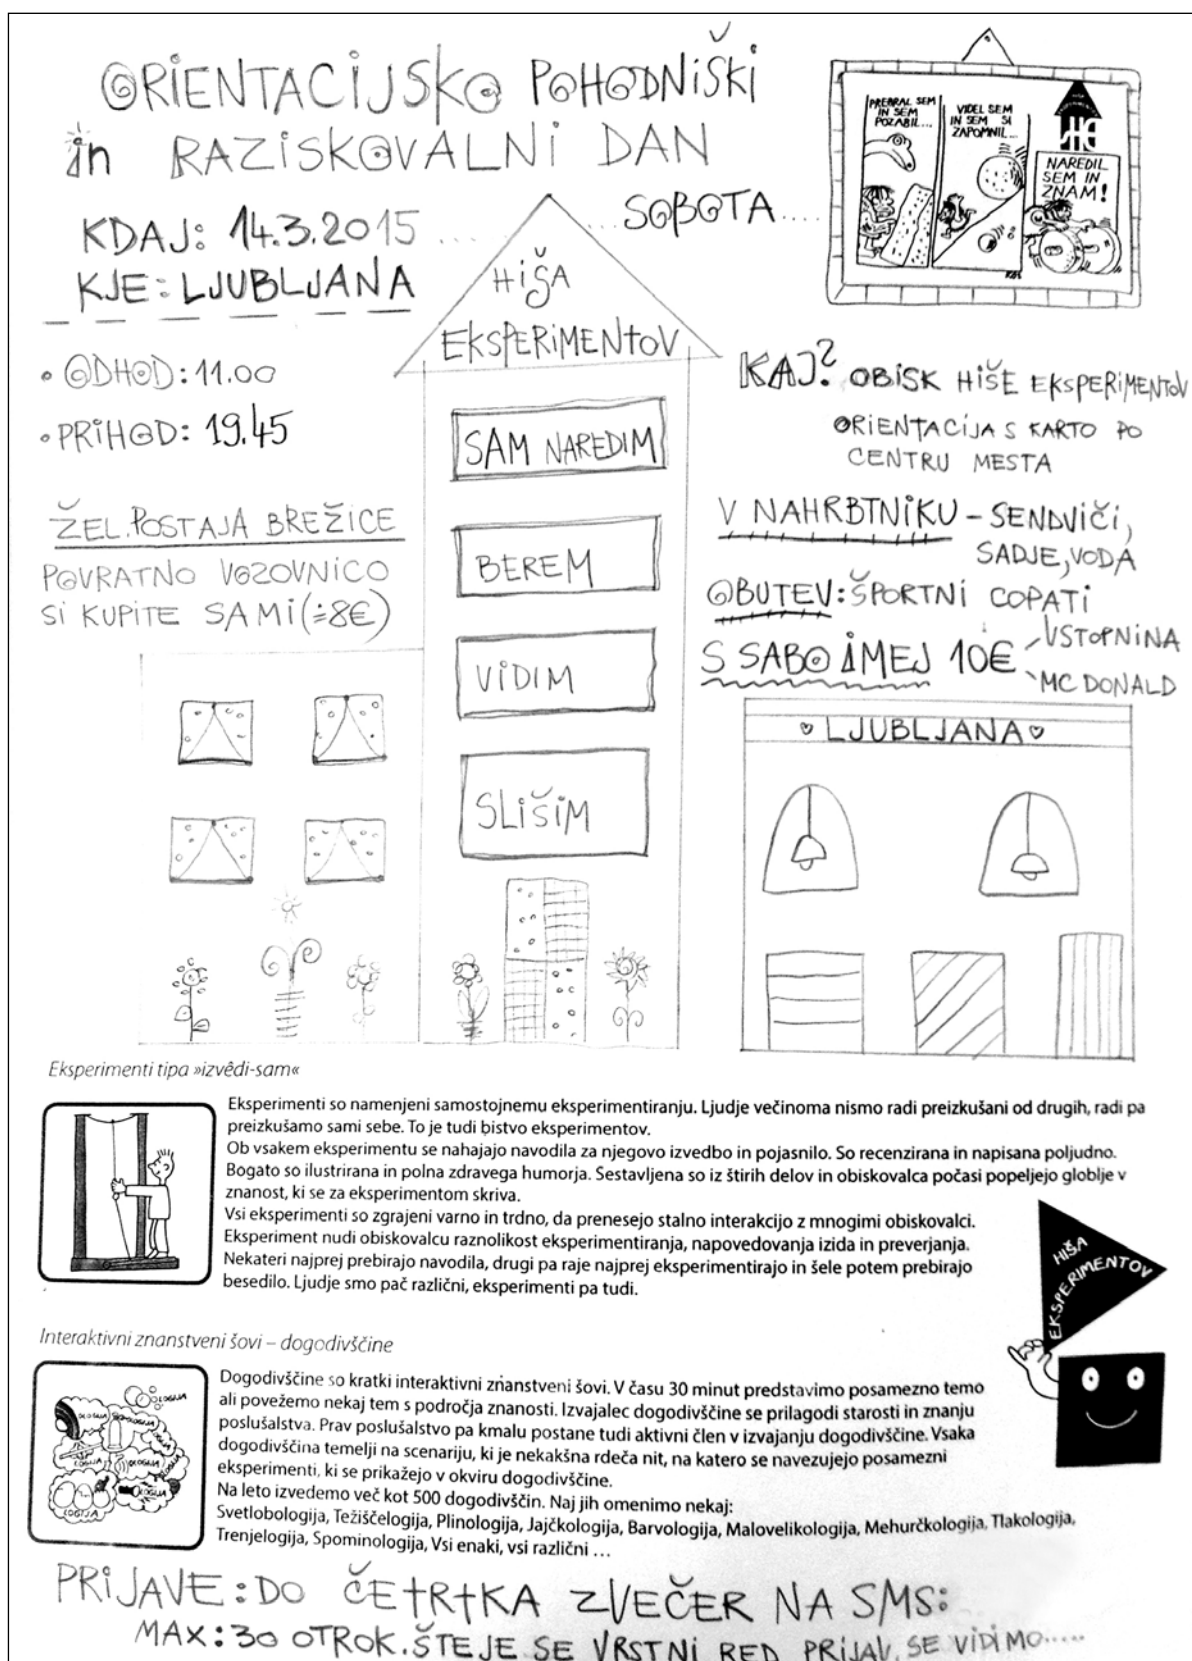 ORIENTACIJSKO POHODNIŠKI
in RAZISKOVALNI DAN
KDAJ: 14.3.2015 ........ SOBOTA.....
KJE: LJUBLJANA
PREBRAL SEM
IN SEM
POZABIL...
VIDEL SEM
IN SEM SI
ZAPOMNIL...
HIŠA
EKSPERIMENTOV
HE
NAREDIL
SEM IN
ZNAM!
HIŠA
EKSPERIMENTOV
SAM NAREDIM
BEREM
VIDIM
SLIŠIM
• ODHOD: 11.00
• PRIHOD: 19.45
ŽEL. POSTAJA BREŽICE
POVRATNO VOZOVNICO
SI KUPITE SAMI (≐8€)
KAJ? OBISK HIŠE EKSPERIMENTOV
ORIENTACIJA S KARTO PO
CENTRU MESTA
V NAHRBTNIKU – SENDVIČI,
SADJE, VODA
OBUTEV: ŠPORTNI COPATI
S SABO IMEJ 10€
VSTOPNINA
MC DONALD
♡ LJUBLJANA ♡
Eksperimenti tipa »izvêdi-sam«
Eksperimenti so namenjeni samostojnemu eksperimentiranju. Ljudje večinoma nismo radi preizkušani od drugih, radi pa
preizkušamo sami sebe. To je tudi bistvo eksperimentov.
Ob vsakem eksperimentu se nahajajo navodila za njegovo izvedbo in pojasnilo. So recenzirana in napisana poljudno.
Bogato so ilustrirana in polna zdravega humorja. Sestavljena so iz štirih delov in obiskovalca počasi popeljejo globlje v
znanost, ki se za eksperimentom skriva.
Vsi eksperimenti so zgrajeni varno in trdno, da prenesejo stalno interakcijo z mnogimi obiskovalci.
Eksperiment nudi obiskovalcu raznolikost eksperimentiranja, napovedovanja izida in preverjanja.
Nekateri najprej prebirajo navodila, drugi pa raje najprej eksperimentirajo in šele potem prebirajo
besedilo. Ljudje smo pač različni, eksperimenti pa tudi.
HIŠA
EKSPERIMENTOV
Interaktivni znanstveni šovi – dogodivščine
Dogodivščine so kratki interaktivni znanstveni šovi. V času 30 minut predstavimo posamezno temo
ali povežemo nekaj tem s področja znanosti. Izvajalec dogodivščine se prilagodi starosti in znanju
poslušalstva. Prav poslušalstvo pa kmalu postane tudi aktivni člen v izvajanju dogodivščine. Vsaka
dogodivščina temelji na scenariju, ki je nekakšna rdeča nit, na katero se navezujejo posamezni
eksperimenti, ki se prikažejo v okviru dogodivščine.
Na leto izvedemo več kot 500 dogodivščin. Naj jih omenimo nekaj:
Svetlobologija, Težiščelogija, Plinologija, Jajčkologija, Barvologija, Malovelikologija, Mehurčkologija, Tlakologija,
Trenjelogija, Spominologija, Vsi enaki, vsi različni ...
PRIJAVE: DO ČETRTKA ZVEČER NA SMS:
MAX: 30 OTROK. ŠTEJE SE VRSTNI RED PRIJAV, SE VIDIMO.....